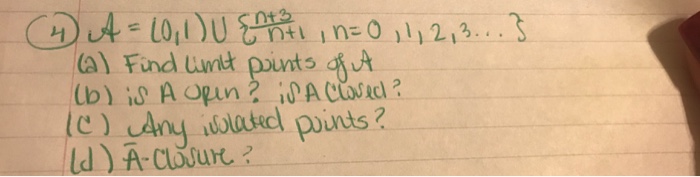 (4) A = (0,1) U { n+3/n+1 , n=0,1,2,3... }
(a) Find limit points of A
(b) is A open? is A closed?
(c) Any isolated points?
(d) Ā-Closure?